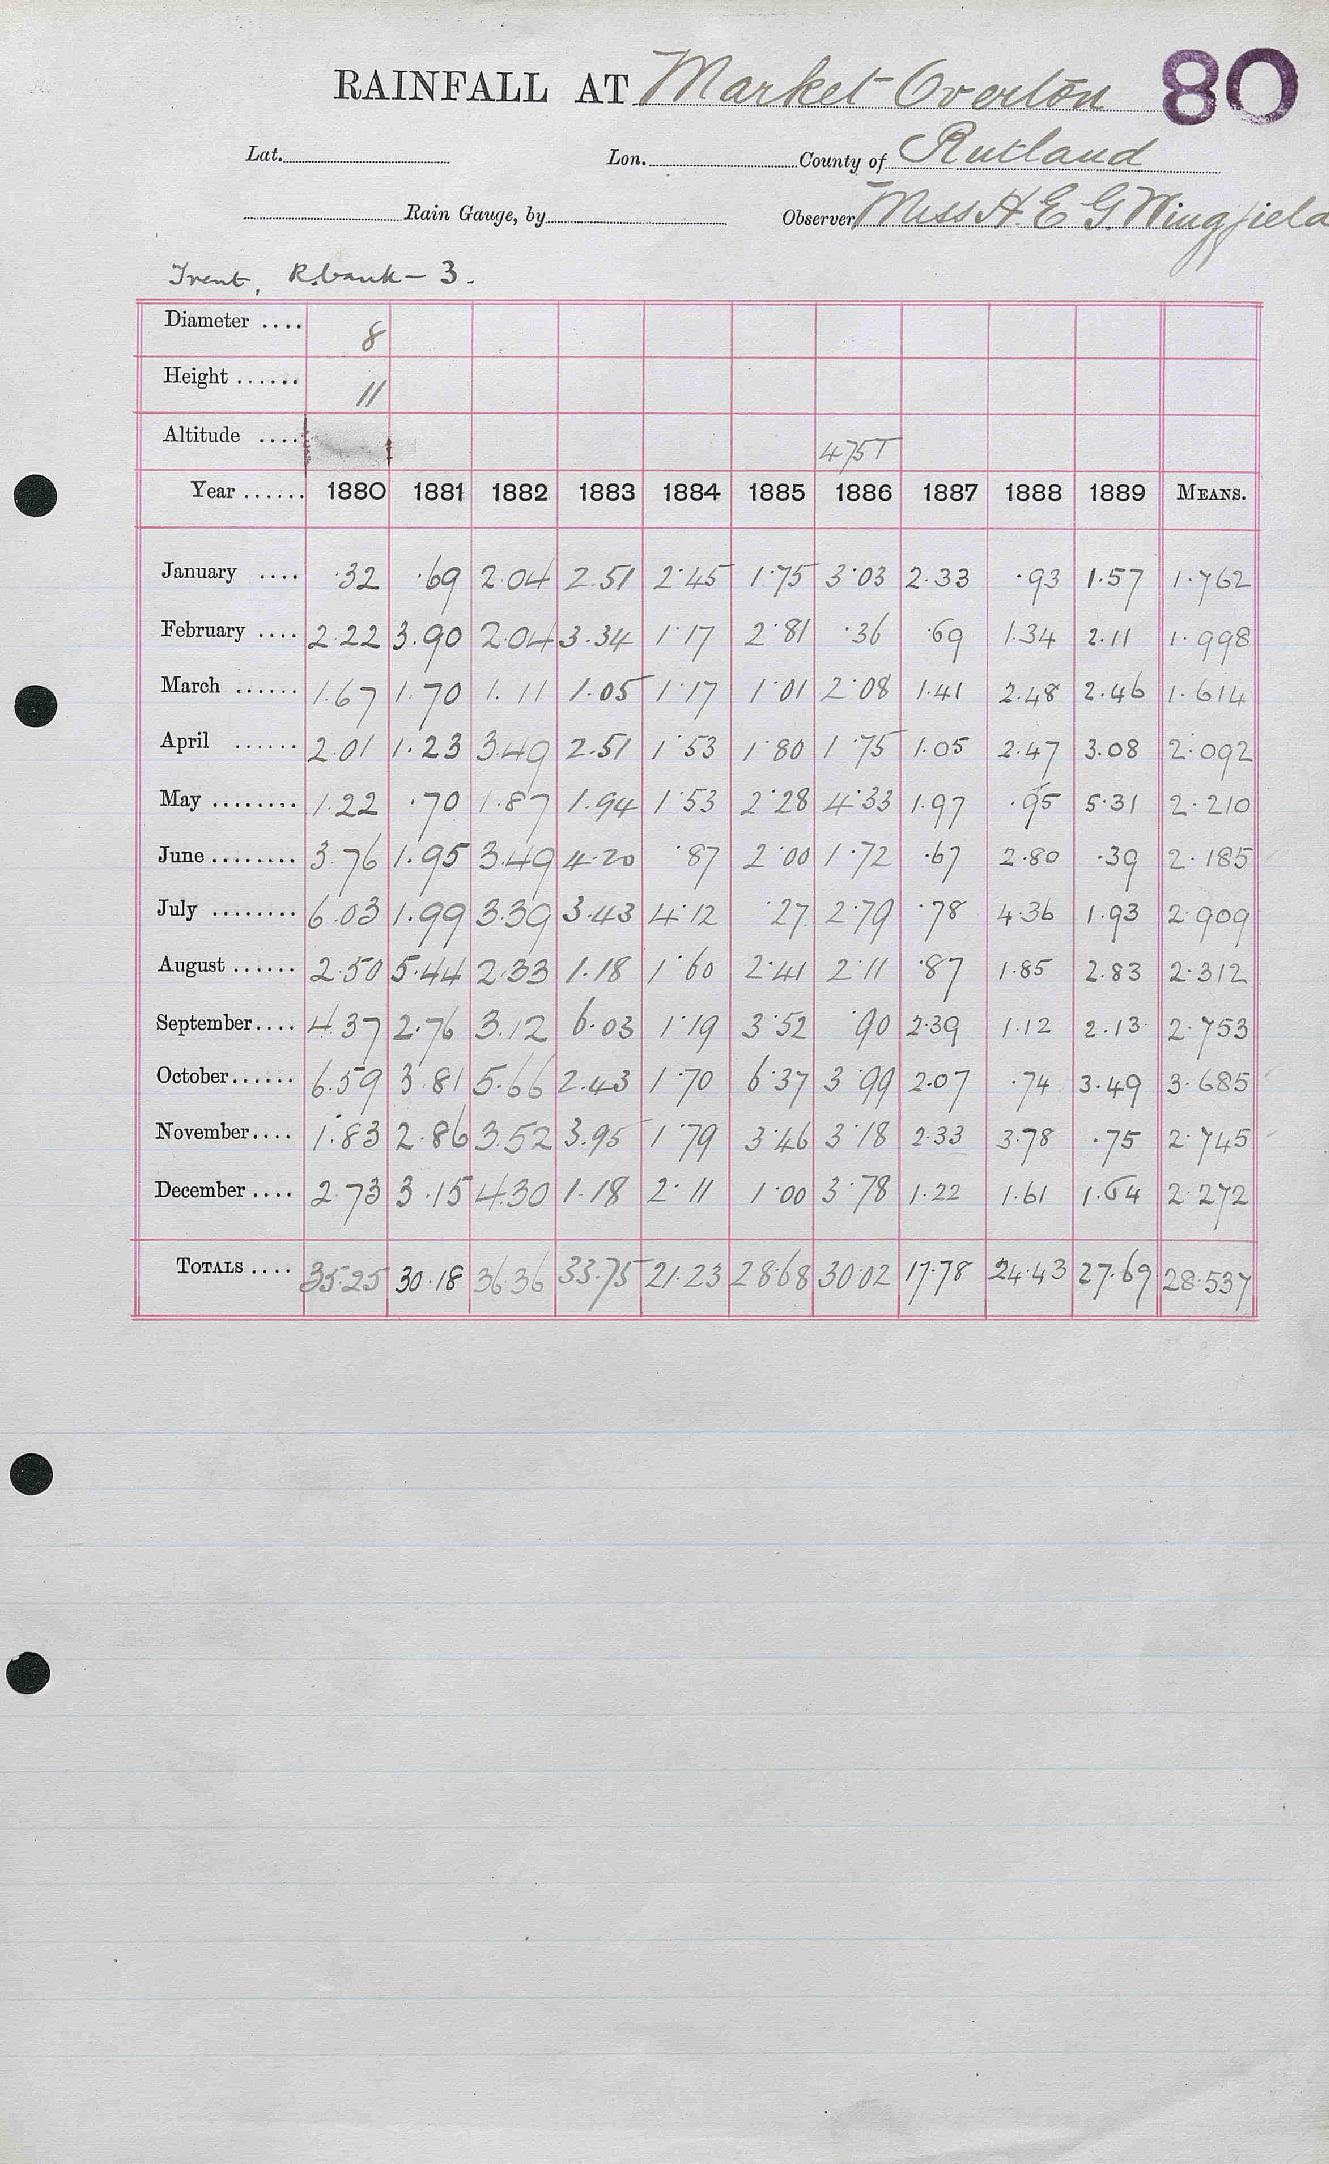 RAINFALL AT Market Overton 80
Lat. Lon. County of Rutland
Rain Gauge, by Observer Miss H. E. G. Wingfield
Trent, R. bank - 3.
Diameter .... 8
Height ...... 11
Altitude .... 475T
Year ...... 1880 1881 1882 1883 1884 1885 1886 1887 1888 1889 MEANS.
January .... .32 .69 2.04 2.51 2.45 1.75 3.03 2.33 .93 1.57 1.762
February .... 2.22 3.90 2.04 3.34 1.17 2.81 .36 .69 1.34 2.11 1.998
March ...... 1.67 1.70 1.11 1.05 1.17 1.01 2.08 1.41 2.48 2.46 1.614
April ...... 2.01 1.23 3.49 2.51 1.53 1.80 1.75 1.05 2.47 3.08 2.092
May ........ 1.22 .70 1.87 1.94 1.53 2.28 4.33 1.97 .95 5.31 2.210
June ........ 3.76 1.95 3.49 4.20 .87 2.00 1.72 .67 2.80 .39 2.185
July ........ 6.03 1.99 3.39 3.43 4.12 .27 2.79 .78 4.36 1.93 2.909
August ...... 2.50 5.44 2.33 1.18 1.60 2.41 2.11 .87 1.85 2.83 2.312
September.... 4.37 2.76 3.12 6.03 1.19 3.52 .90 2.39 1.12 2.13 2.753
October...... 6.59 3.81 5.66 2.43 1.70 6.37 3.99 2.07 .74 3.49 3.685
November.... 1.83 2.86 3.52 3.95 1.79 3.46 3.18 2.33 3.78 .75 2.745
December .... 2.73 3.15 4.30 1.18 2.11 1.00 3.78 1.22 1.61 1.64 2.272
TOTALS .... 35.25 30.18 36.36 33.75 21.23 28.68 30.02 17.78 24.43 27.69 28.537